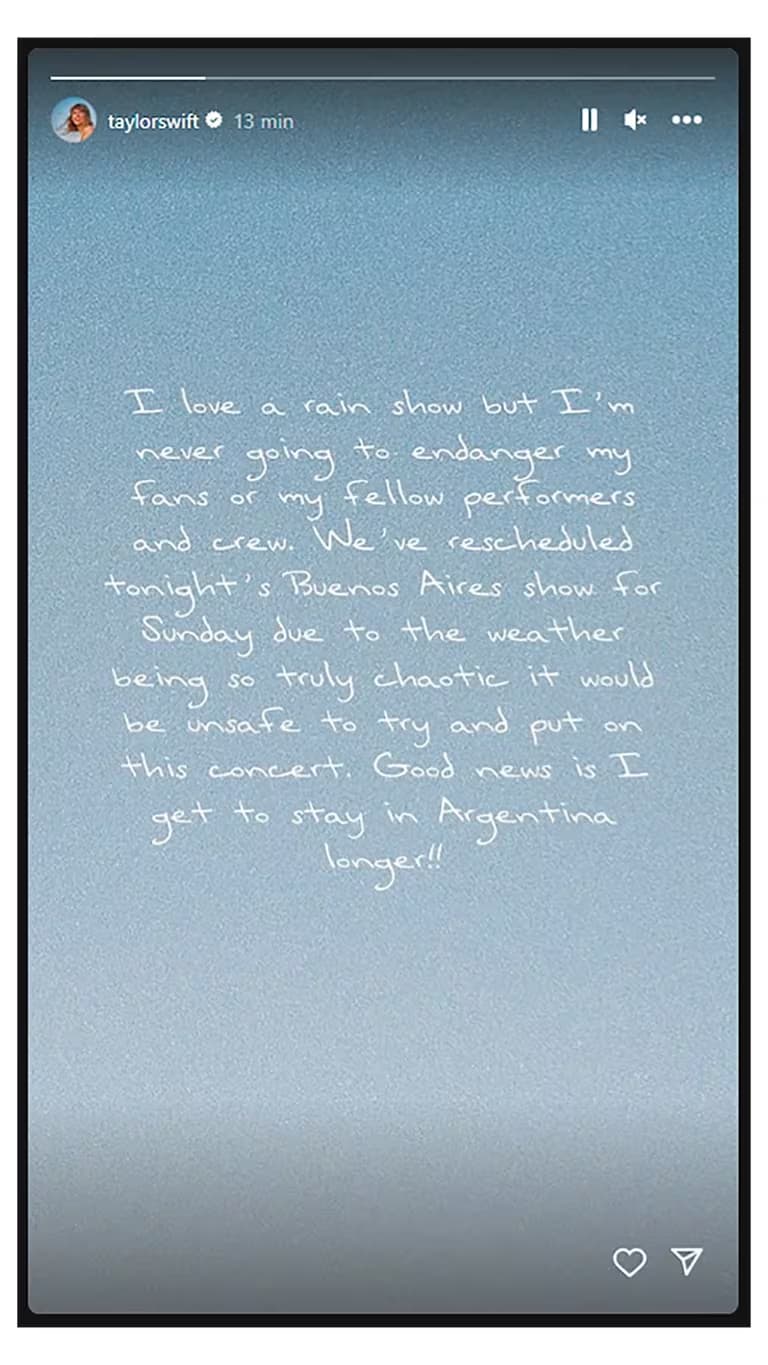 taylorswift 13 min
I love a rain show but I'm
never going to endanger my
fans or my fellow performers
and crew. We've rescheduled
tonight's Buenos Aires show for
Sunday due to the weather
being so truly chaotic it would
be unsafe to try and put on
this concert. Good news is I
get to stay in Argentina
longer!!